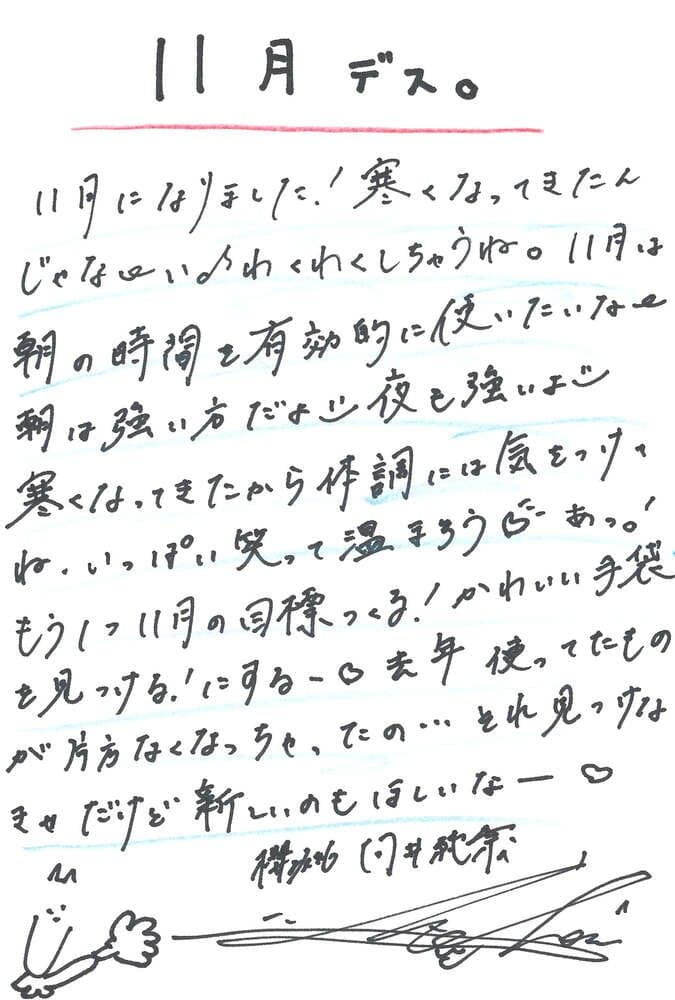 11月 デス。
11月になりました!寒くなってきたん
じゃなーい♪わくわくしちゃうね。11月は
朝の時間を有効的に使いたいなー
朝は強い方だよ 夜も強いよ
寒くなってきたから体調には気をつけて
ね、いっぱい笑って温まろう あっ!
もう1つ11月の目標つくる!かわいい手袋
を見つける!にするー♡去年使ってたもの
が片方なくなっちゃったの…それ見つけな
きゃだけど新しいのもほしいなー♡